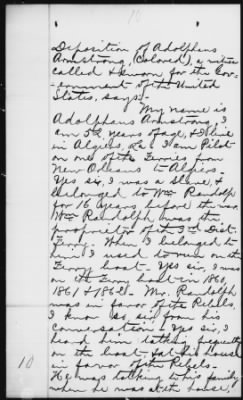 10
Deposition of Adolphus
Armstrong, (Colored), a witness
called & sworn for the Gov-
ernment of the United
States, says:-
My name is
Adolphus Armstrong, I
am 52 years of age, & I live
in Algiers, La. I am Pilot
on one of the Ferries from
New Orleans to Algiers.-
Yes sir, I was a slave, &
belonged to Wm Randolph
for 16 years before the war.
Wm Randolph was the
proprietor of the 3rd Dist.
Ferry. When I belonged to
him I used to run on the
Ferry boat - Yes sir, I was
on the Ferry boat in 1860
1861 & 1862. Mr. Randolph
was in favor of the Rebels,
I know so, sir, from his
conversation. Yes sir, I
heard him talking frequently
on the boat & at his house
in favor of the Rebels-
He was talking to his family
when he was at the house,
10